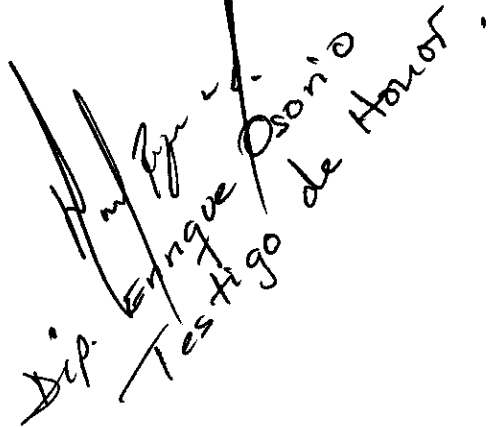 Dip. Enrique Osorio
Testigo de Honor.